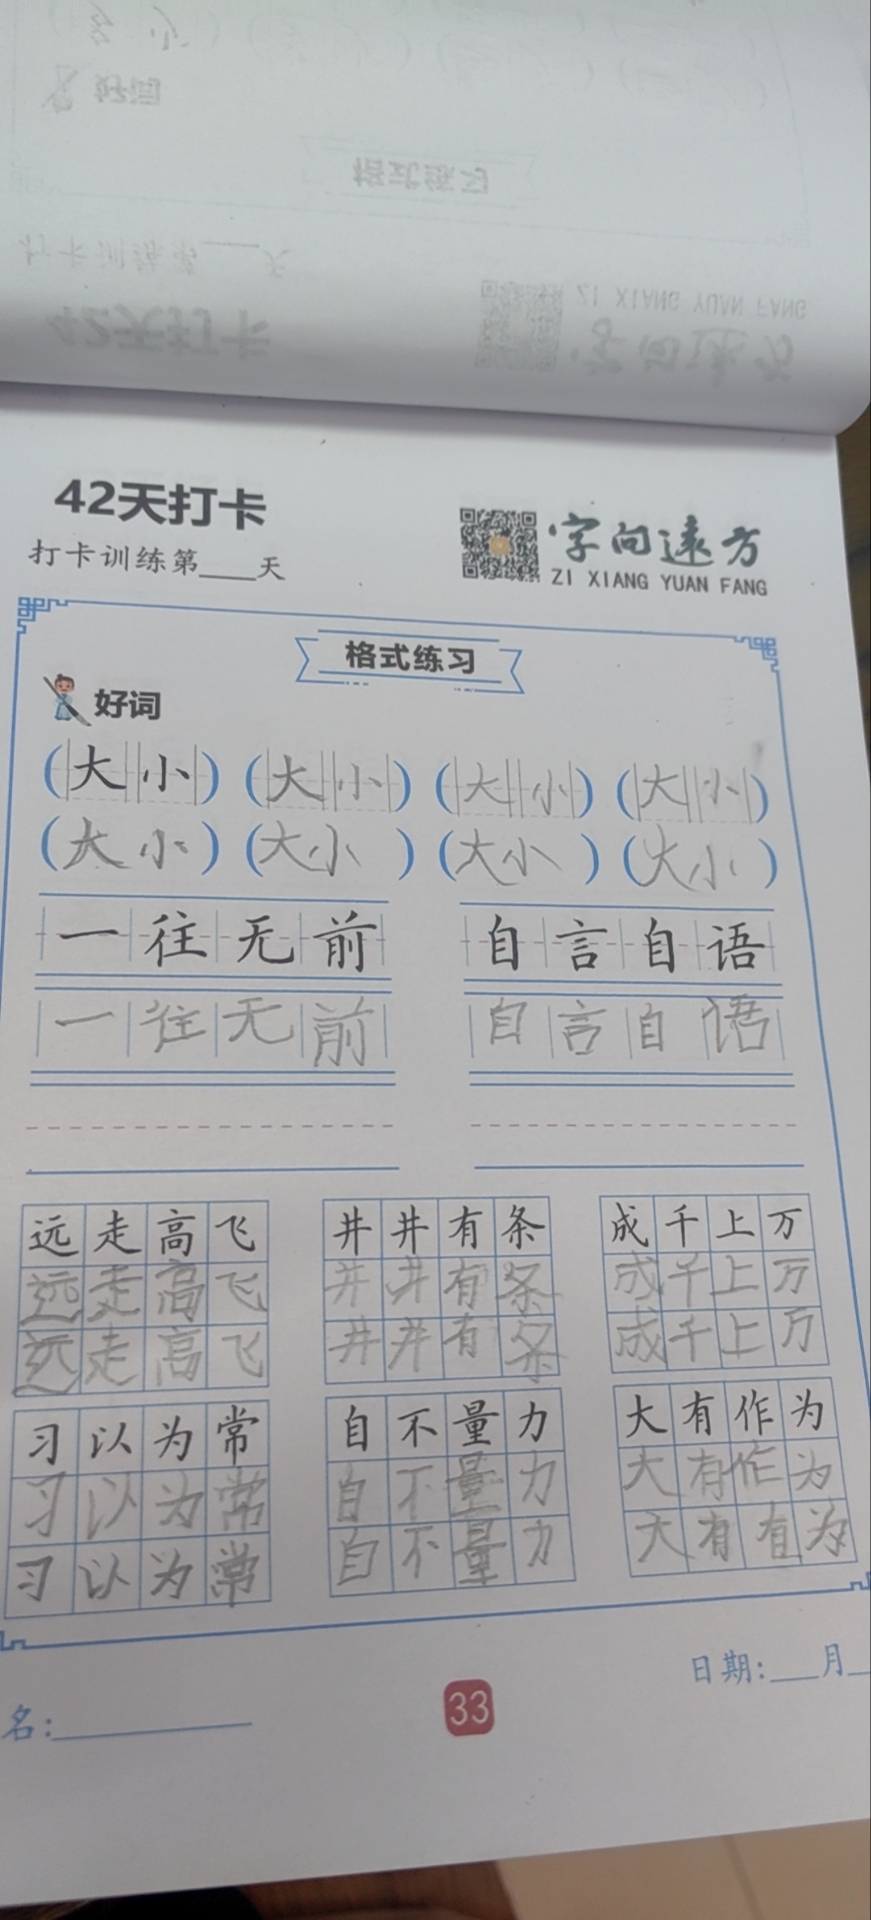 多 少
好词
格式练习
打卡训练第____天
42天打卡
字向远方
ZI XIANG YUAN FANG
42天打卡
打卡训练第____天
字向遠方
ZI XIANG YUAN FANG
格式练习
好词
(大小) (大小) (大小) (大小)
(大小) (大小) (大小) (大小)
一往无前 自言自语
一往无前 自言自语
远走高飞 井井有条 成千上万
远走高飞 井井有条 成千上万
远走高飞 井井有条 成千上万
习以为常 自不量力 大有作为
习以为常 自不量力 大有作为
习以为常 自不量力 大有有为
日期:___月
名:
33